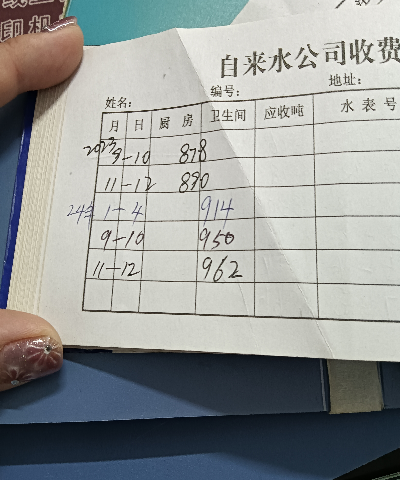 印机
自来水公司收费
姓名： 编号： 地址：
月 日 厨 房 卫生间 应收吨 水 表 号
2023 9-10 878
11-12 890
24年 1-4 914
9-10 950
11-12 962